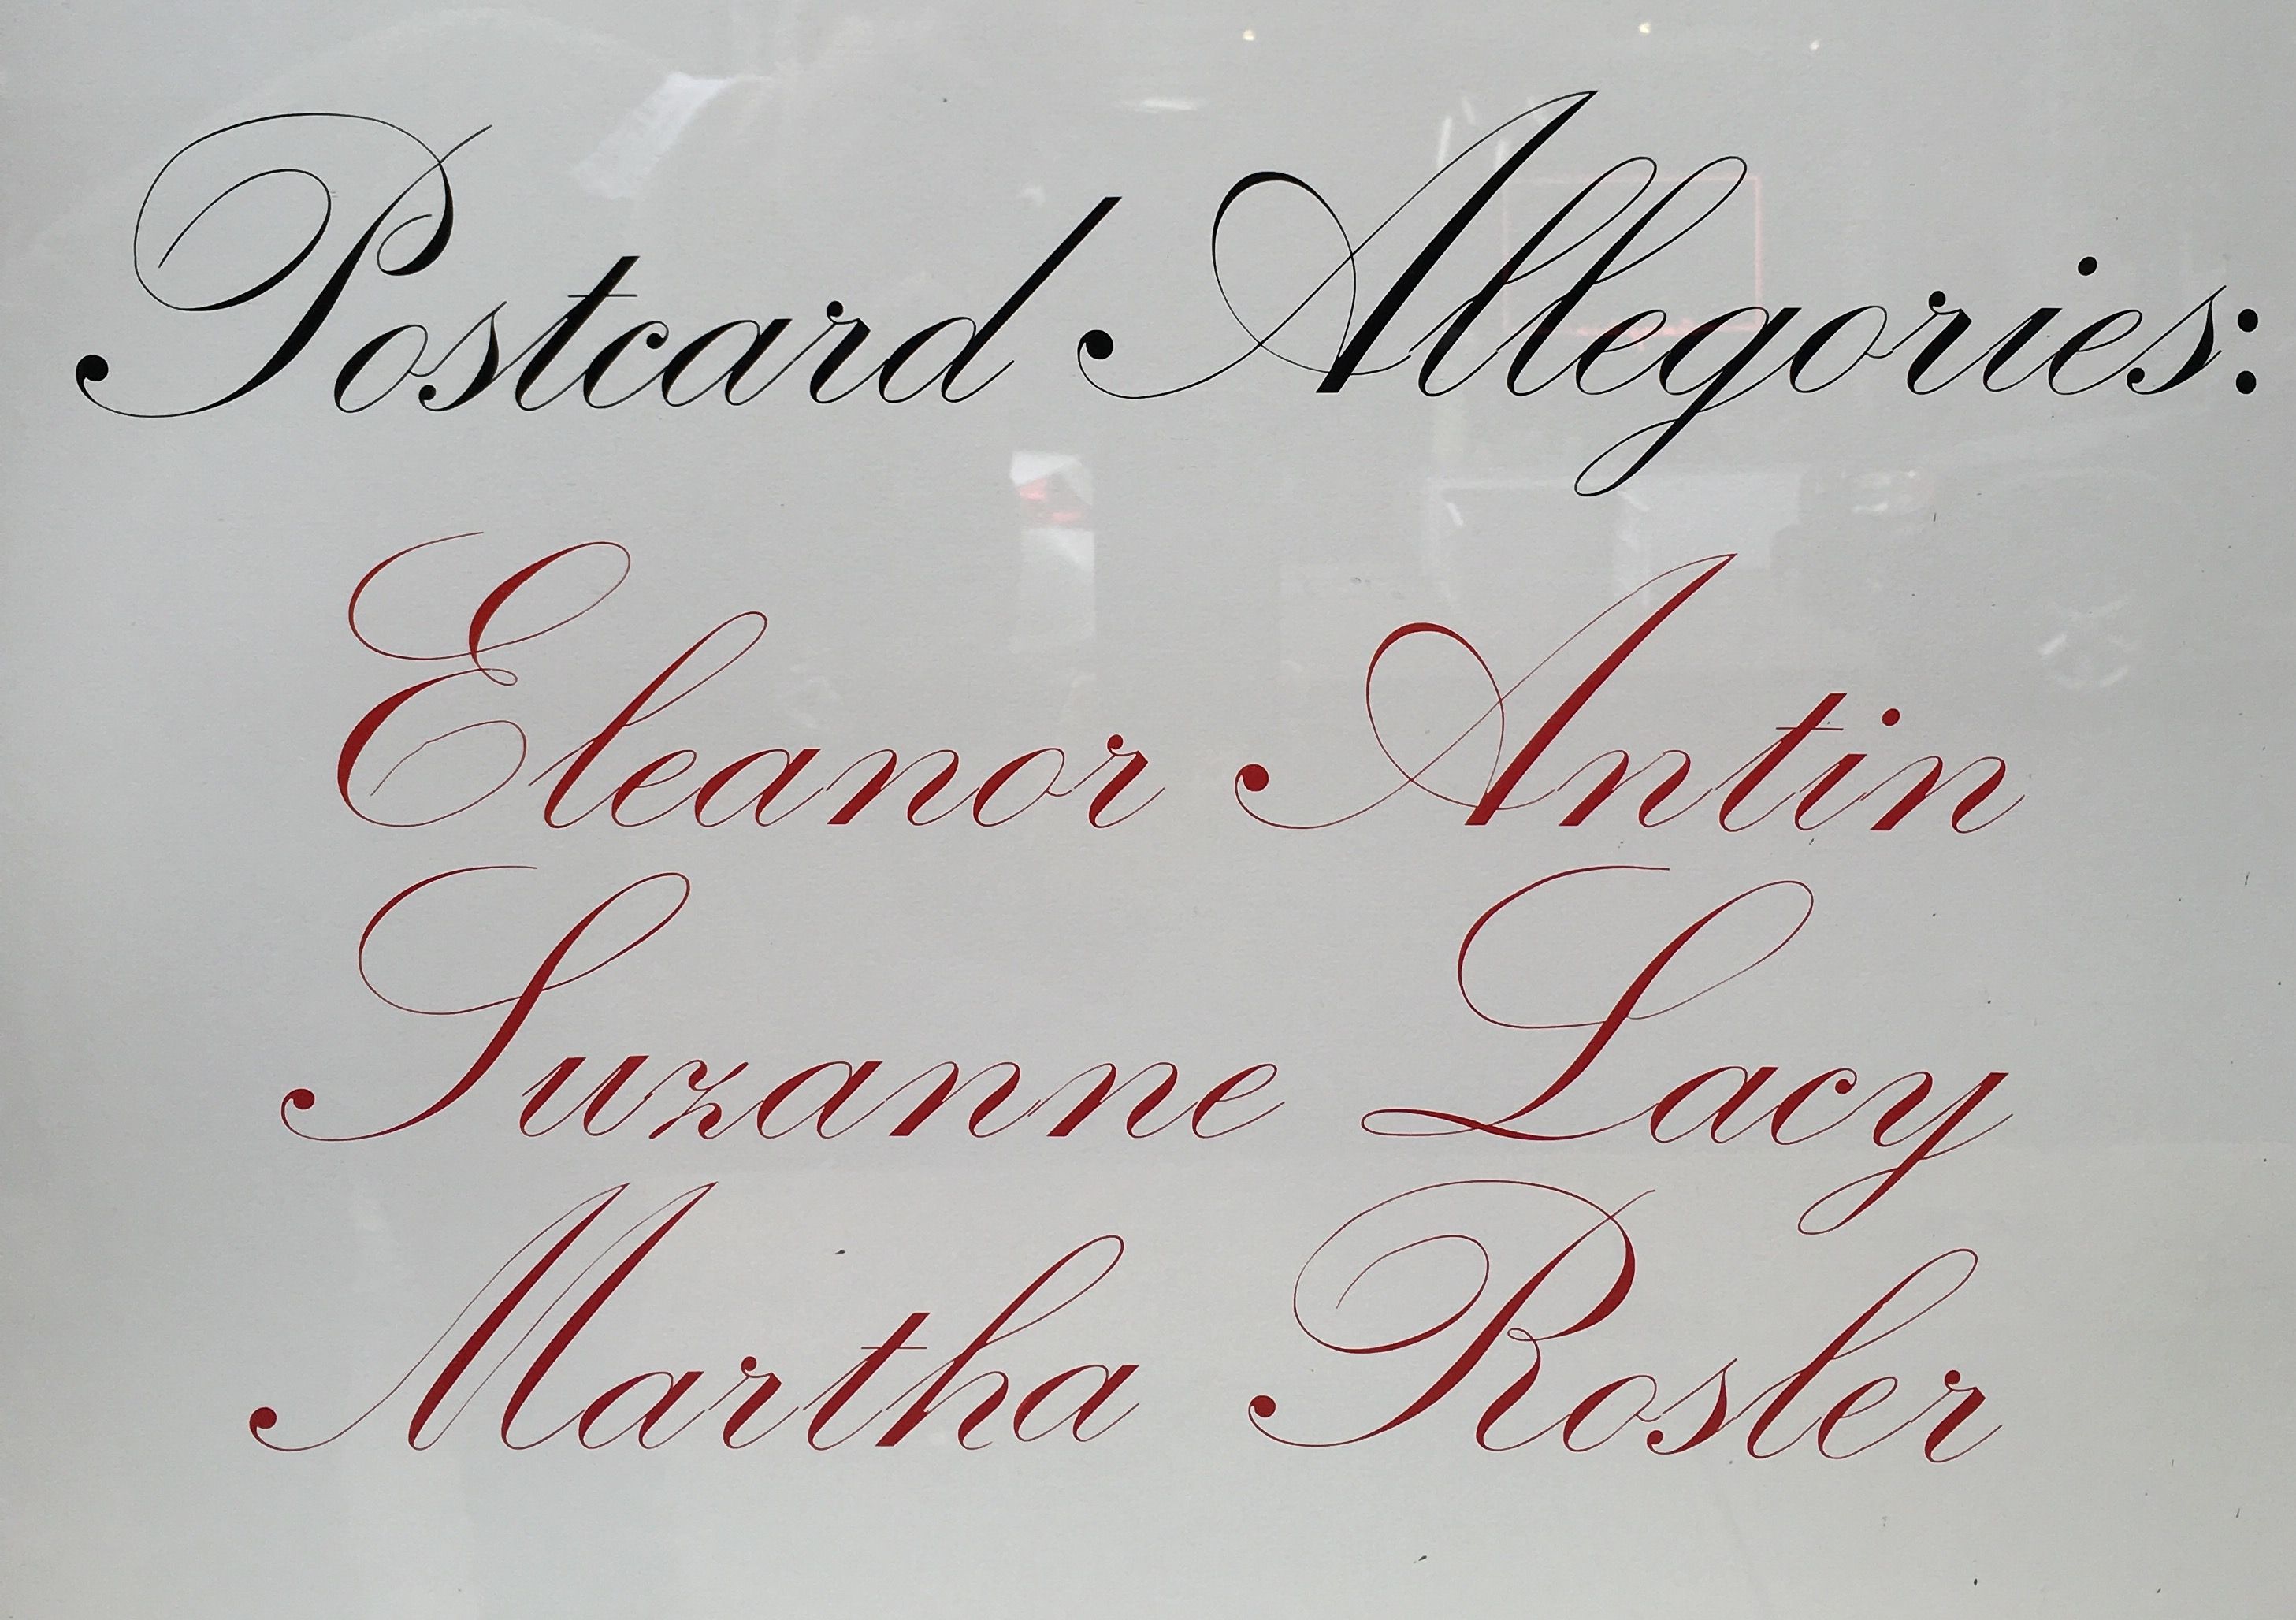 Postcard Allegories:
Eleanor Antin
Suzanne Lacy
Martha Rosler